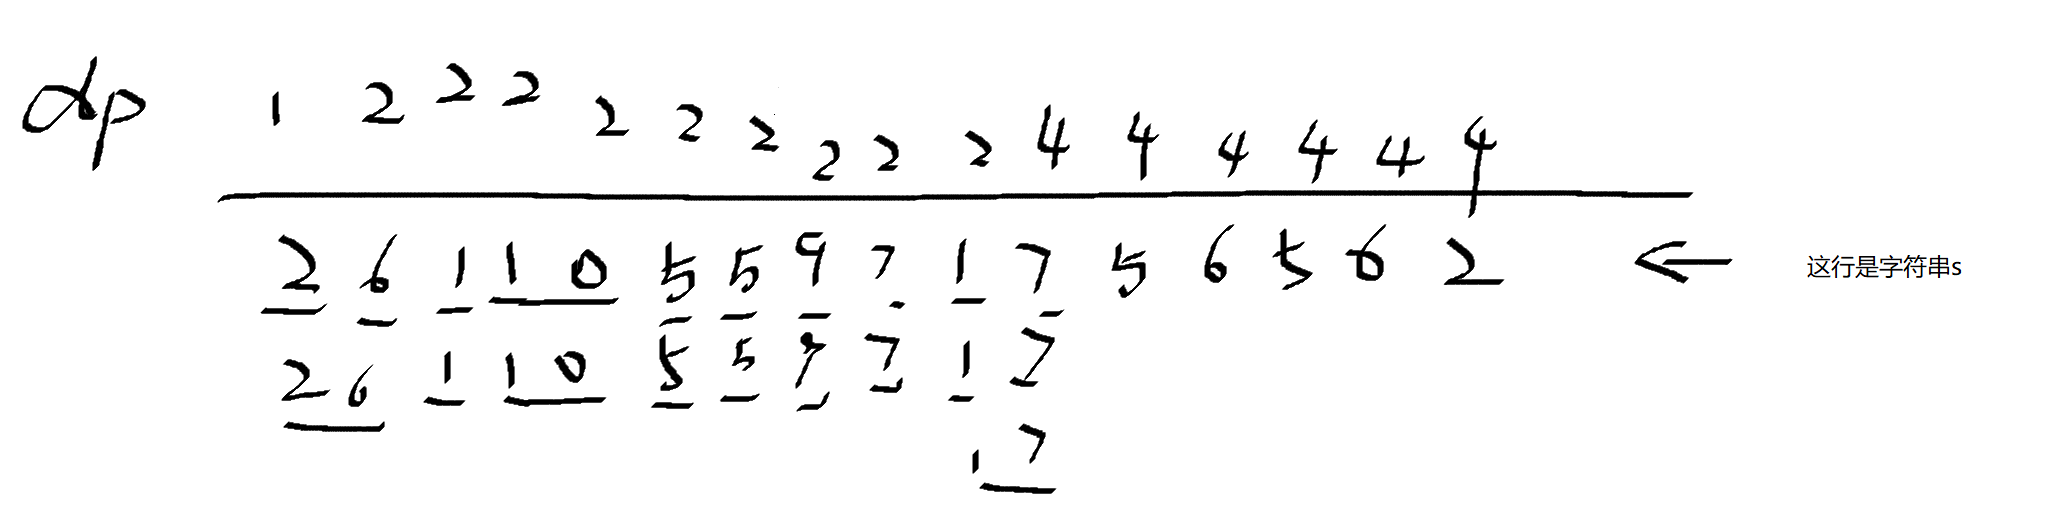 dp 1 2 2 2 2 2 2 2 2 2 4 4 4 4 4 4
2 6 1 1 0 5 5 9 7 1 7 5 6 5 6 2 ← 这行是字符串s
2 6 1 1 0 5 5 9 7 1 7
1 7